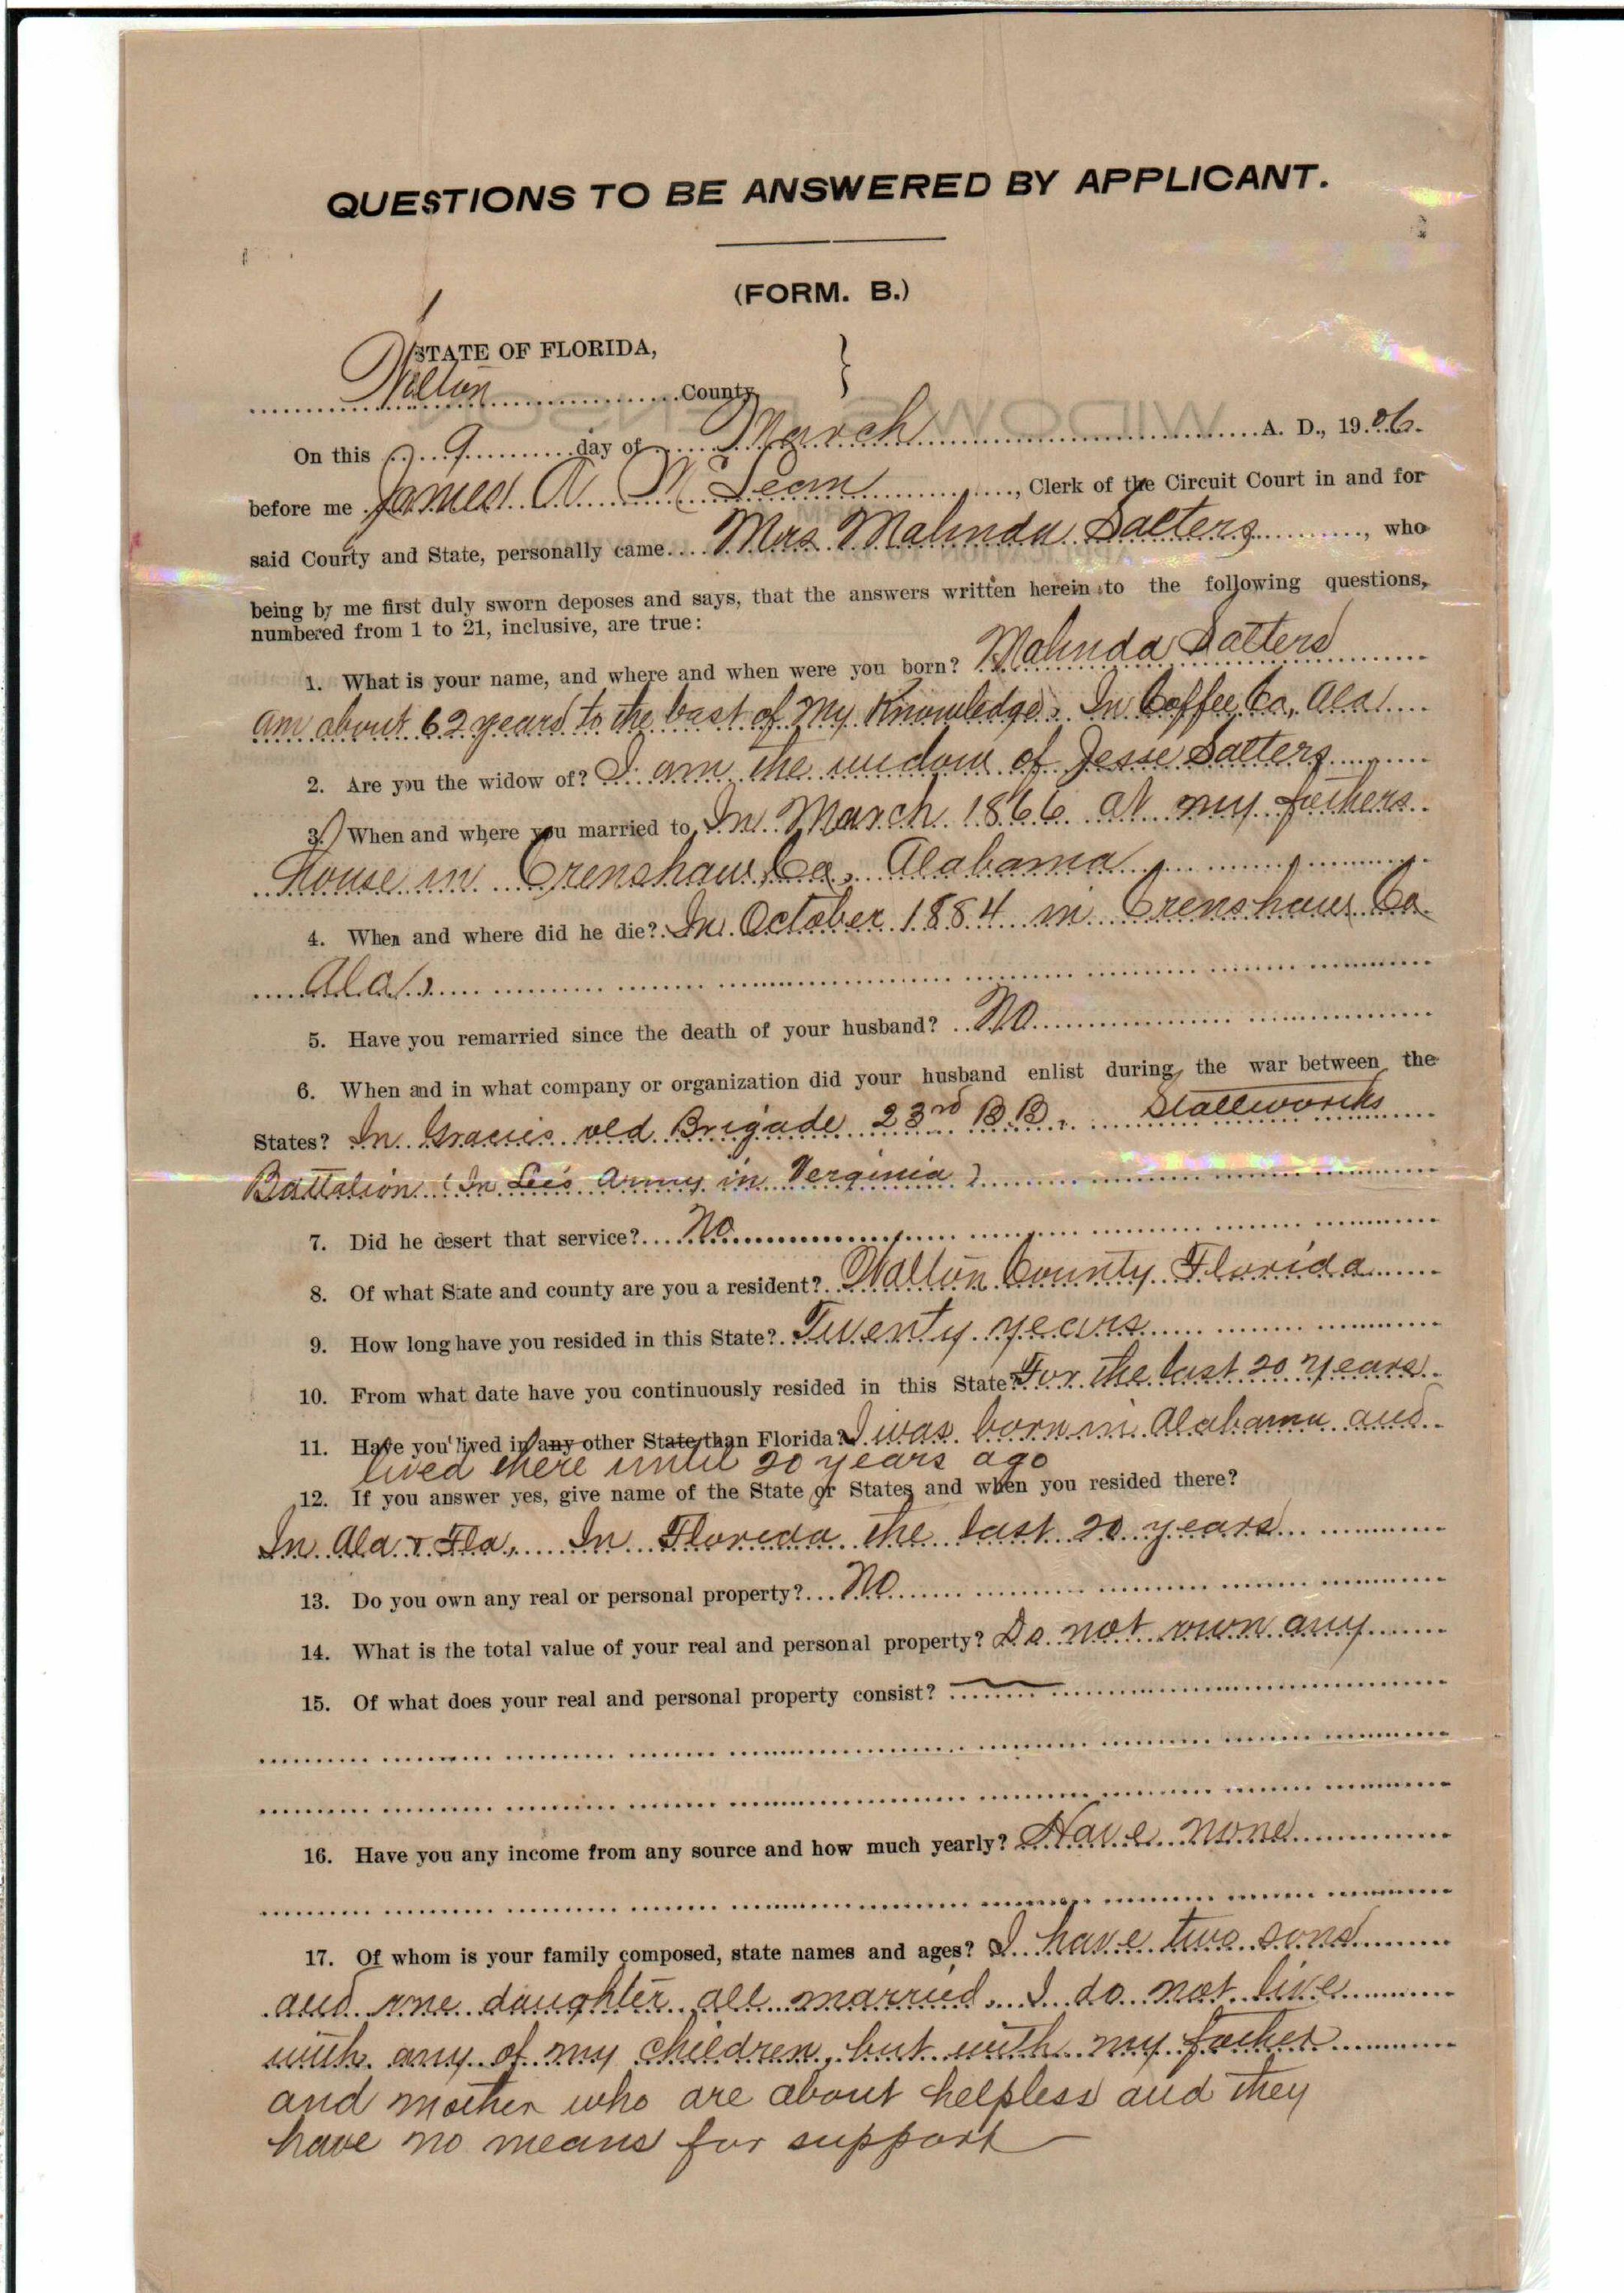 QUESTIONS TO BE ANSWERED BY APPLICANT.
(FORM. B.)
STATE OF FLORIDA,
Walton County }
On this 9 day of March A. D., 1906.
before me James A. McLean, Clerk of the Circuit Court in and for
said County and State, personally came Mrs Malinda Salters, who
being by me first duly sworn deposes and says, that the answers written herein to the following questions,
numbered from 1 to 21, inclusive, are true:
1. What is your name, and where and when were you born? Malinda Salters
am about 62 years to the best of my Knowledge. In Coffee Co, Ala
2. Are you the widow of? I am the widow of Jesse Salters
3. When and where you married to In March 1866 at my fathers
house in Crenshaw Co, Alabama
4. When and where did he die? In October 1884 in Crenshaw Co
Ala.
5. Have you remarried since the death of your husband? No
6. When and in what company or organization did your husband enlist during the war between the
States? In Gracies old Brigade 23rd B.B. Stallworths
Battalion (In Lee's Army in Verginia)
7. Did he desert that service? No
8. Of what State and county are you a resident? Walton County Florida
9. How long have you resided in this State? Twenty years
10. From what date have you continuously resided in this State? For the last 20 years
11. Have you lived in any other State than Florida? I was born in Alabama and
lived there until 20 years ago
12. If you answer yes, give name of the State or States and when you resided there?
In Ala & Fla, In Florida the last 20 years
13. Do you own any real or personal property? No
14. What is the total value of your real and personal property? Do not own any
15. Of what does your real and personal property consist?
16. Have you any income from any source and how much yearly? Have none
17. Of whom is your family composed, state names and ages? I have two sons
and one daughter all married. I do not live
with any of my children, but with my father
and mother who are about helpless and they
have no means for support